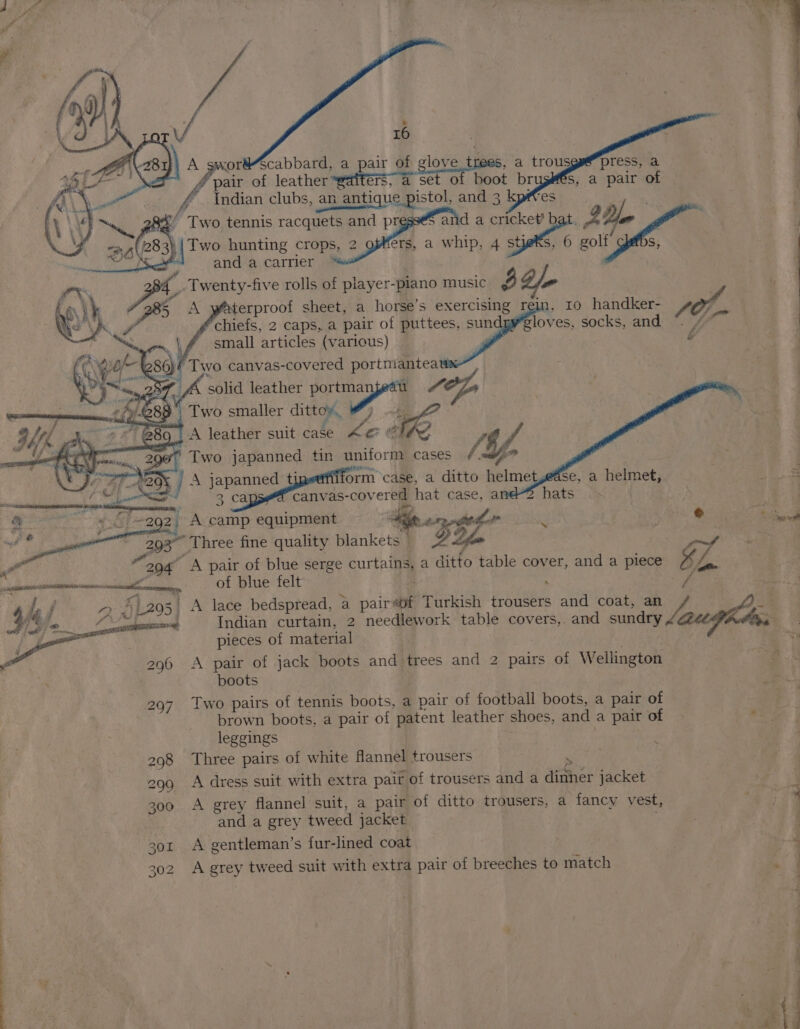 16
LOT
281 A sword scabbard, a pair of glove trees, a trouser press, a
pair of leather gaiters, a set of boot brushes, a pair of
Indian clubs, an antique pistol, and 3 knives
282 Two tennis racquets and presses and a cricket bat. 22/-
283 Two hunting crops, 2 others, a whip, 4 sticks, 6 golf clubs,
and a carrier
284 Twenty-five rolls of player-piano music 32/-
285 A waterproof sheet, a horse's exercising rein, 10 handker-
chiefs, 2 caps, a pair of puttees, sundry gloves, socks, and
small articles (various)
286 Two canvas-covered portmanteaux
287 A solid leather portmanteau
288 Two smaller ditto
289 A leather suit case
290 Two japanned tin uniform cases
291 A japanned tin uniform case, a ditto helmet case, a helmet,
3 caps, a canvas-covered hat case, and 2 hats
292 A camp equipment
293 Three fine quality blankets 22/-
294 A pair of blue serge curtains, a ditto table cover, and a piece
of blue felt
295 A lace bedspread, a pair of Turkish trousers and coat, an
Indian curtain, 2 needlework table covers, and sundry
pieces of material
296 A pair of jack boots and trees and 2 pairs of Wellington
boots
297 Two pairs of tennis boots, a pair of football boots, a pair of
brown boots, a pair of patent leather shoes, and a pair of
leggings
298 Three pairs of white flannel trousers
299 A dress suit with extra pair of trousers and a dinner jacket
300 A grey flannel suit, a pair of ditto trousers, a fancy vest,
and a grey tweed jacket
301 A gentleman's fur-lined coat
302 A grey tweed suit with extra pair of breeches to match